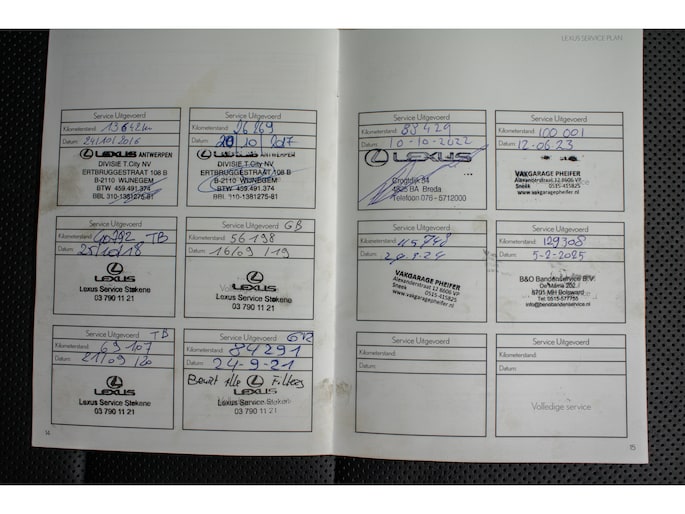 LEXUS SERVICE PLAN
Service Uitgevoerd
Kilometerstand: 13642km
Datum: 24/10/2016
LEXUS ANTWERPEN
DIVISIE T City NV
ERTBRUGGESTRAAT 108 B
B-2110 WIJNEGEM
BTW 459.491.374
BBL 310-1381275-81
Service Uitgevoerd
Kilometerstand: 26269
Datum: 20/10/2017
LEXUS ANTWERPEN
DIVISIE T City NV
ERTBRUGGESTRAAT 108 B
B-2110 WIJNEGEM
BTW 459.491.374
BBL 310-1381275-81
Service Uitgevoerd
Kilometerstand: 40792 TB
Datum: 25/10/18
LEXUS
Lexus Service Stekene
03 790 11 21
Service Uitgevoerd GB
Kilometerstand: 56198
Datum: 16/09/19
LEXUS
Lexus Service Stekene
03 790 11 21
Service Uitgevoerd TB
Kilometerstand: 69107
Datum: 21/09/20
LEXUS
Lexus Service Stekene
03 790 11 21
Service Uitgevoerd
Kilometerstand: 84291
Datum: 24-9-21
Beurt Alle Filters
LEXUS
Lexus Service Stekene
03 790 11 21
14
Service Uitgevoerd
Kilometerstand: 88429
Datum: 10-10-2022
LEXUS
4825 BA Breda
Telefoon 076-5712000
Service Uitgevoerd
Kilometerstand: 100 001
Datum: 12.06.23
VAKGARAGE PHEIFER
Alexanderstraat 12 8606 VP
Sneek 0515-415825
www.vakgaragepheifer.nl
Service Uitgevoerd
Kilometerstand:
Datum:
VAKGARAGE PHEIFER
Alexanderstraat 12 8606 VP
Sneek 0515-415825
www.vakgaragepheifer.nl
Service Uitgevoerd
Kilometerstand: 129308
Datum: 5-2-2025
B&O Bandenservice B.V.
8701 MH Bolsward
Tel: 0515-577755
info@benobandenservice.nl
Service Uitgevoerd
Kilometerstand:
Datum:
Service Uitgevoerd
Kilometerstand:
Datum:
Volledige service
15